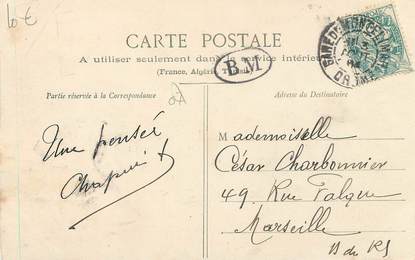 10€
CARTE POSTALE
A utiliser seulement dans le service intérieur
(France, Algérie, T
BM
Partie réservée à la Correspondance
Adresse du Destinataire
Une pensée
Mademoiselle
César Charbonnier
49, Rue Falque
Marseille
B de R